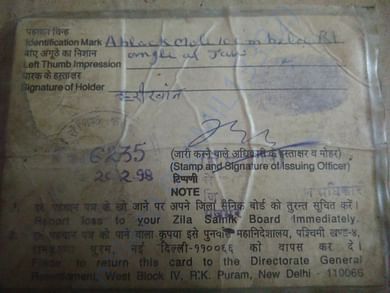 पहचान चिन्ह
Identification Mark A black Mole 10 cm below Rt
बाएं अंगूठे का निशान angle of Jaw
Left Thumb Impression
धारक के हस्ताक्षर
Signature of Holder
6235 (जारी करने वाले अधिकारी के हस्ताक्षर व मोहर)
20.2.98 (Stamp and Signature of Issuing Officer)
टिप्पणी
NOTE
1. इस पहचान पत्र के खो जाने पर अपने जिला सैनिक बोर्ड को तुरन्त सूचित करें।
Report loss to your Zila Sainik Board Immediately.
2. इस पहचान पत्र को पाने वाला कृपया इसे पुनर्वास महानिदेशालय, पश्चिमी खण्ड-४,
रामकृष्ण पुरम, नई दिल्ली-११००६६ को वापस कर दें।
Finder to return this card to the Directorate General
Resettlement, West Block IV, R.K. Puram, New Delhi - 110066